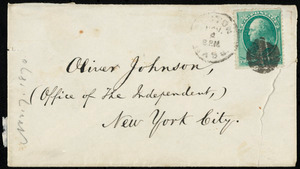 Oliver Johnson,
(Office of The Independent,)
New York City.